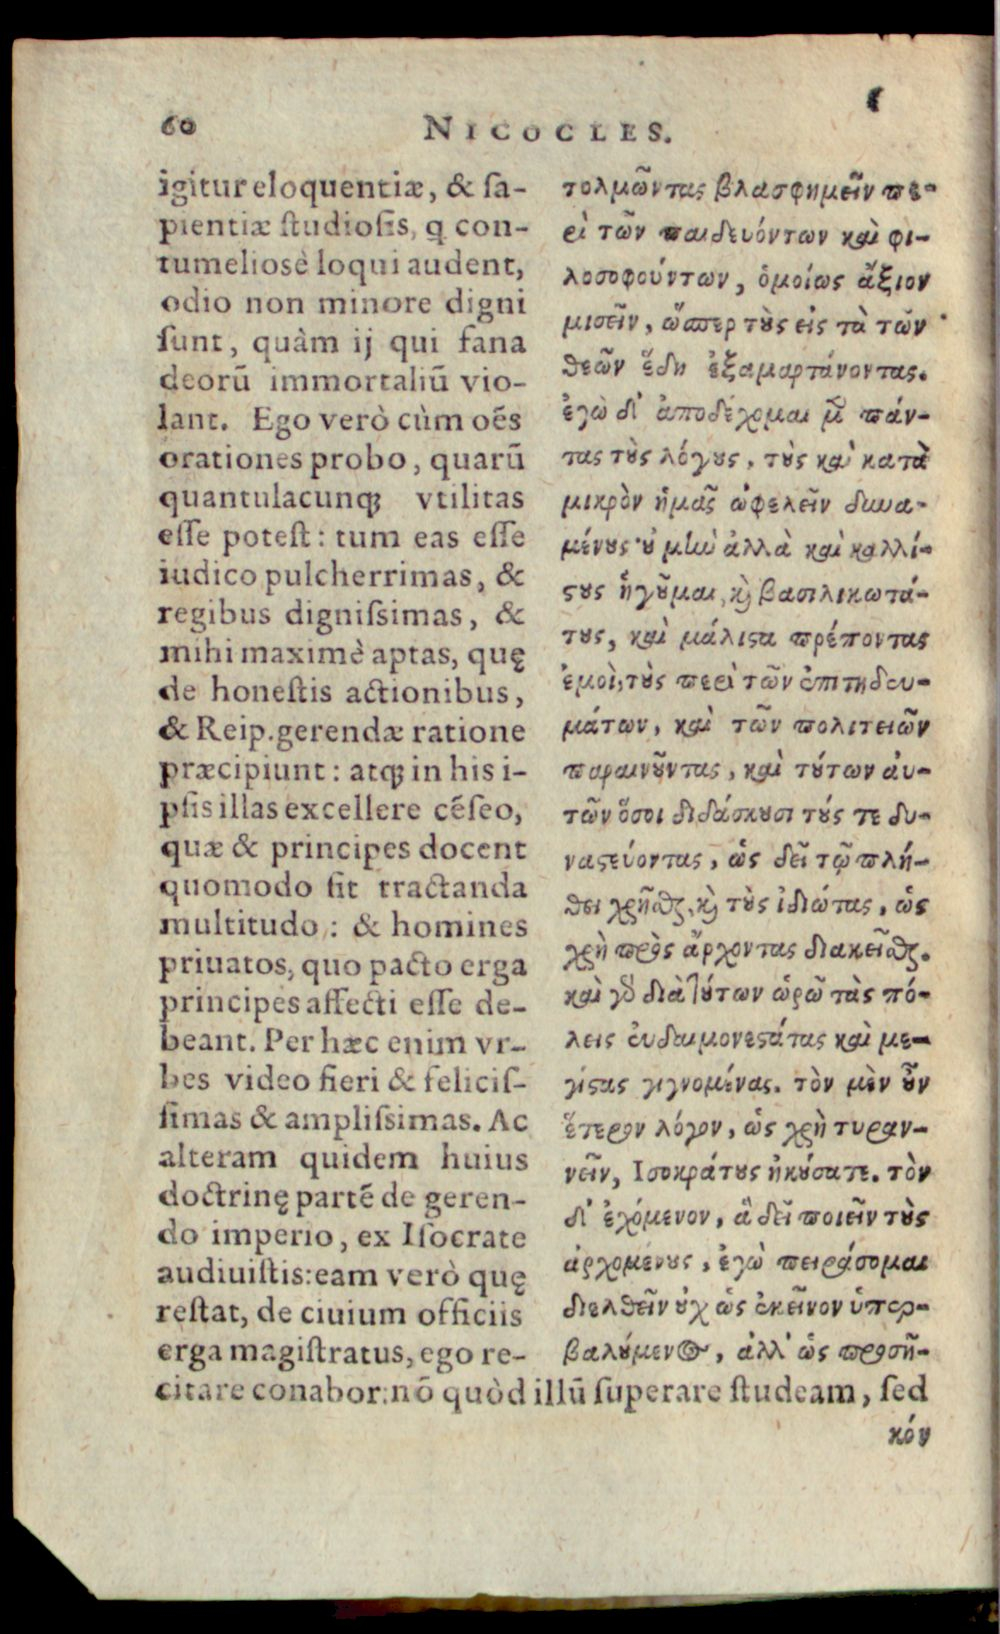 60 NICOCLES.
igitur eloquentiæ, & ſa-
pientiæ ſtudioſis, q̃ con-
tumeliosè loqui audent,
odio non minore digni
ſunt, quàm ij qui fana
deorũ immortaliũ vio-
lant. Ego verò cùm oẽs
orationes probo, quarũ
quantulacunq; vtilitas
eſſe poteſt: tum eas eſſe
iudico pulcherrimas, &
regibus digniſsimas, &
mihi maximè aptas, quę
de honeſtis actionibus,
& Reip. gerendæ ratione
præcipiunt: atq; in his i-
pſis illas excellere cẽſeo,
quæ & principes docent
quomodo ſit tractanda
multitudo: & homines
priuatos, quo pacto erga
principes affecti eſſe de-
beant. Per hæc enim vr-
bes video fieri & feliciſ-
ſimas & ampliſsimas. Ac
alteram quidem huius
doctrinę partẽ de geren-
do imperio, ex Iſocrate
audiuiſtis: eam verò quę
reſtat, de ciuium officiis
erga magiſtratus, ego re-
citare conabor: nõ quòd illũ ſuperare ſtudeam, ſed
τολμῶντας βλασφημεῖν πε-
ρὶ τῶν παιδευόντων καὶ φι-
λοσοφούντων, ὁμοίως ἄξιον
μισεῖν, ὥσπερ τȣ̀ς εἰς τὰ τῶν
θεῶν ἕδη ἐξαμαρτάνοντας.
ἐγὼ δ' ἀποδέχομαι μ̃ πάν-
τας τȣ̀ς λόγȣς, τȣ̀ς καὶ κατὰ
μικρὸν ἡμᾶς ὠφελεῖν δυνα-
μένȣς· ȣ̓ μὴν ἀλλὰ καὶ καλλί-
ϛȣς ἡγȣ͂μαι, κ̀ βασιλικωτά-
τȣς, καὶ μάλιϛα πρέποντας
ἐμοὶ, τȣ̀ς περὶ τῶν ἐπιτηδευ-
μάτων, καὶ τῶν πολιτειῶν
παραινȣ͂ντας, καὶ τȣ́των αὐ-
τῶν ὅσοι διδάσκȣσι τȣ́ς τε δυ-
ναϛεύοντας, ὡς δεῖ τῷ πλή-
θει χρῆσθαι, κ̀ τȣ̀ς ἰδιώτας, ὡς
χρὴ πρὸς ἄρχοντας διακεῖσθαι.
καὶ γὸ διὰ τȣ́των ὁρῶ τὰς πό-
λεις εὐδαιμονεϛάτας καὶ με-
γίϛας γιγνομένας. τὸν μὲν ȣ̓͂ν
ἕτερον λόγον, ὡς χρὴ τυραν-
νεῖν, Ισοκράτȣς ἠκȣ́σατε. τὸν
δ' ἐχόμενον, ἃ δεῖ ποιεῖν τȣ̀ς
ἀρχομένȣς, ἐγὼ πειράσομαι
διελθεῖν ȣ̓χ ὡς ἐκεῖνον ὑπερ-
βαλȣ́μενος, ἀλλ' ὡς προσῆ-
κόν